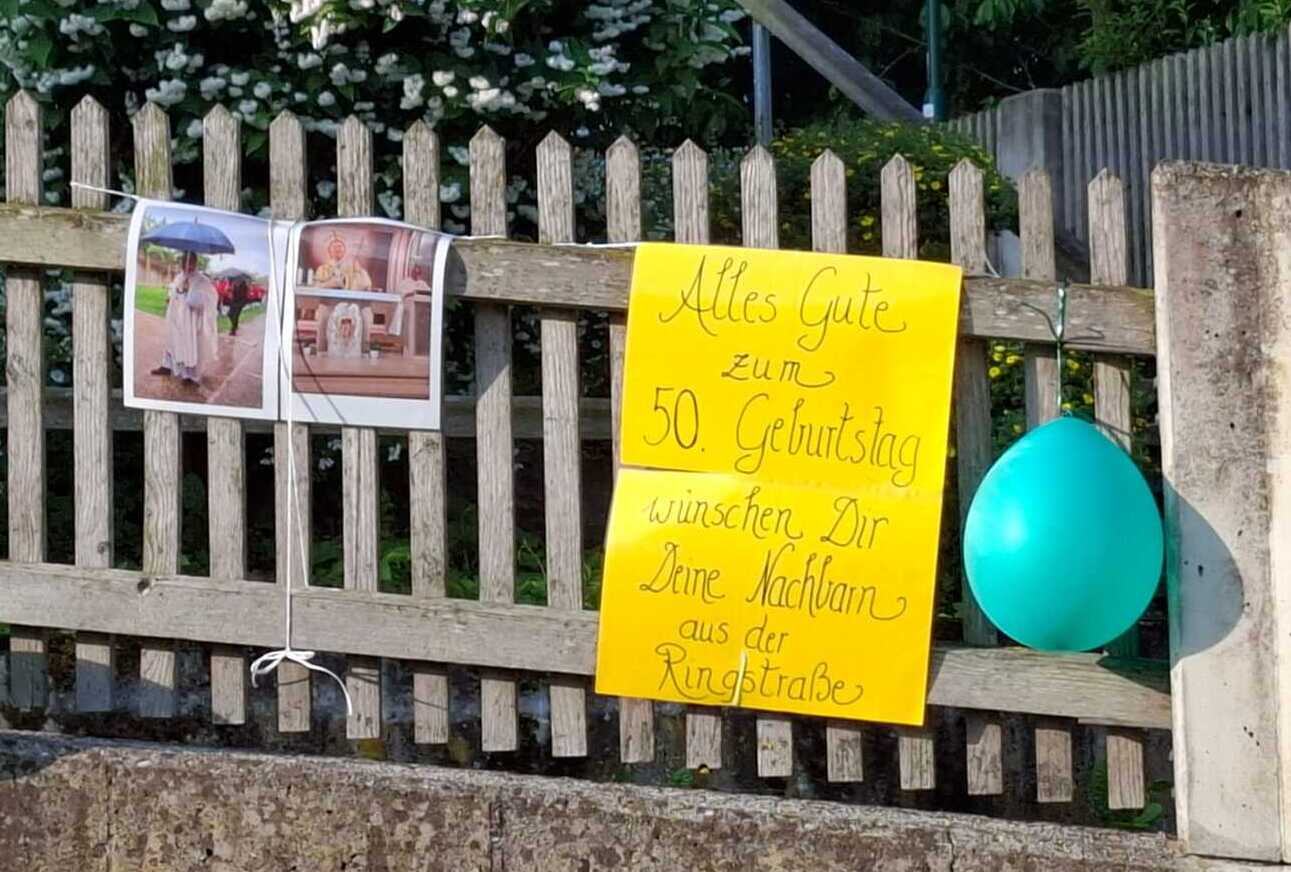 Alles Gute
zum
50. Geburtstag
wünschen Dir
Deine Nachbarn
aus der
Ringstraße